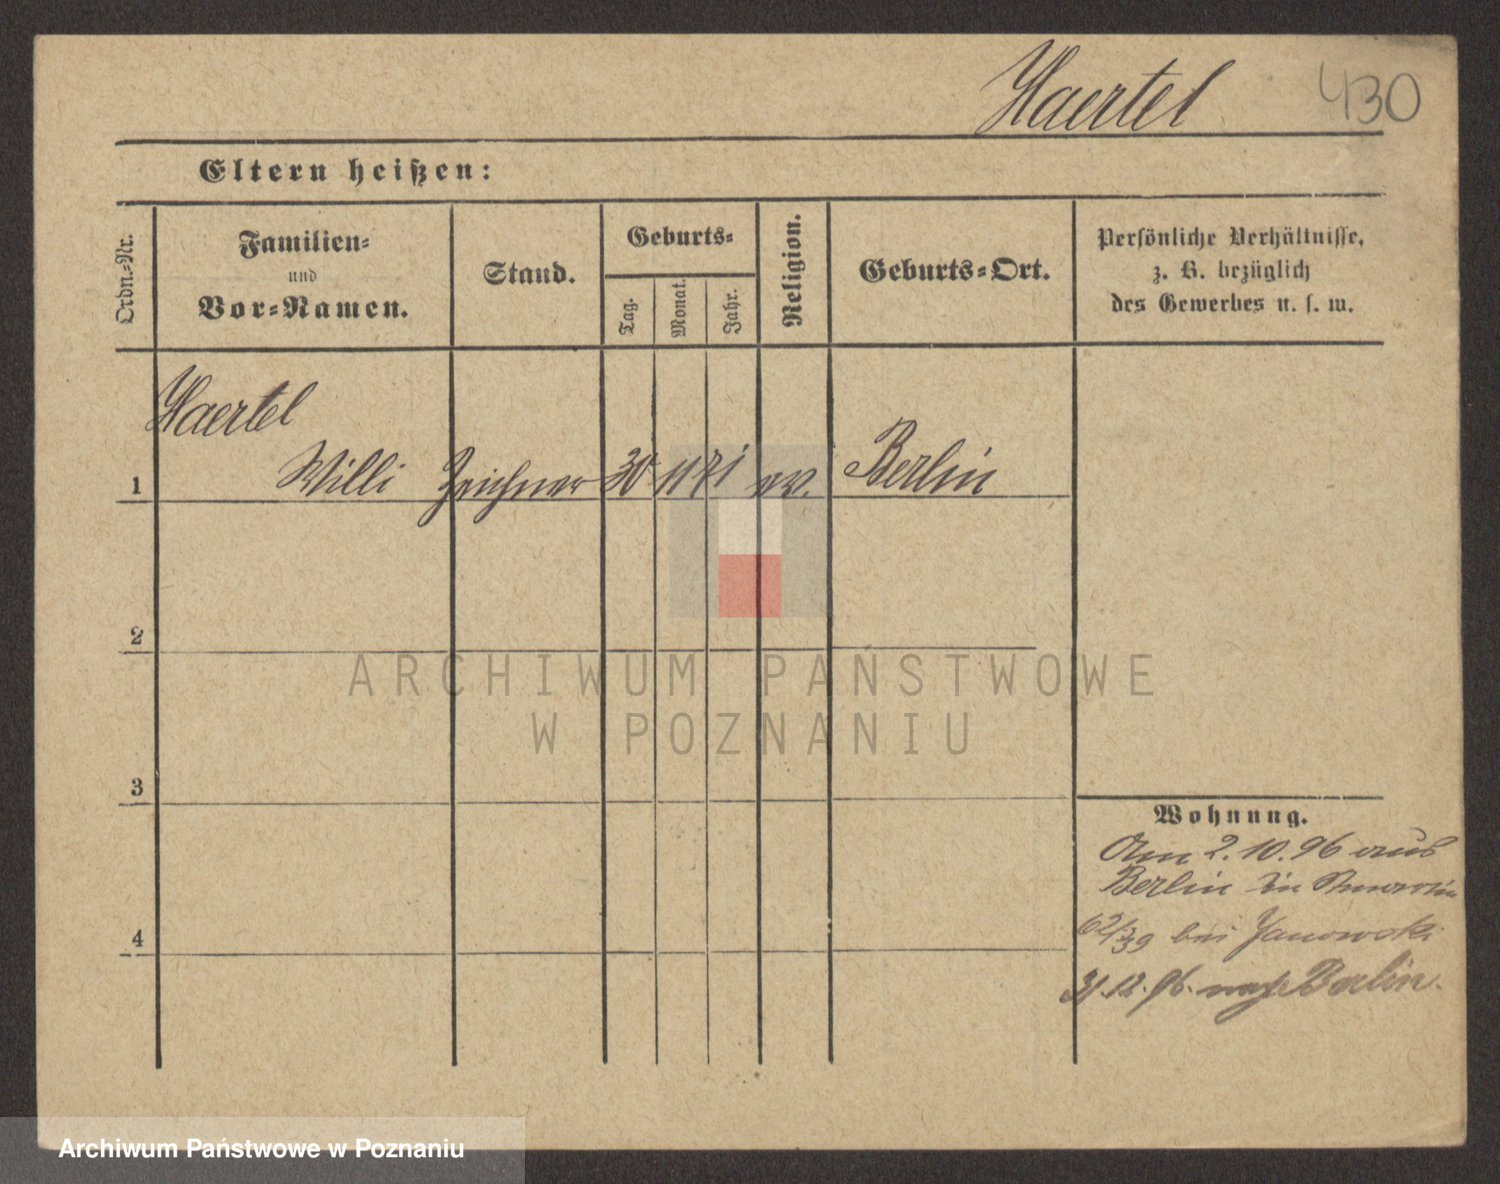 Haertel 430
Eltern heißen:
Ordn.-Nr.
Familien-
und
Vor-Namen.
Stand.
Geburts-
Tag.
Monat.
Jahr.
Religion.
Geburts-Ort.
Persönliche Verhältnisse,
z. B. bezüglich
des Gewerbes u. s. w.
Haertel
1 Willi Zeichner 30 11 71 ev. Berlin
2
3
4
Wohnung.
Am 2.10.96 aus
Berlin in
62/39 bei Janowski
31.12.96. nach Berlin.
ARCHIWUM PAŃSTWOWE
W POZNANIU
Archiwum Państwowe w Poznaniu